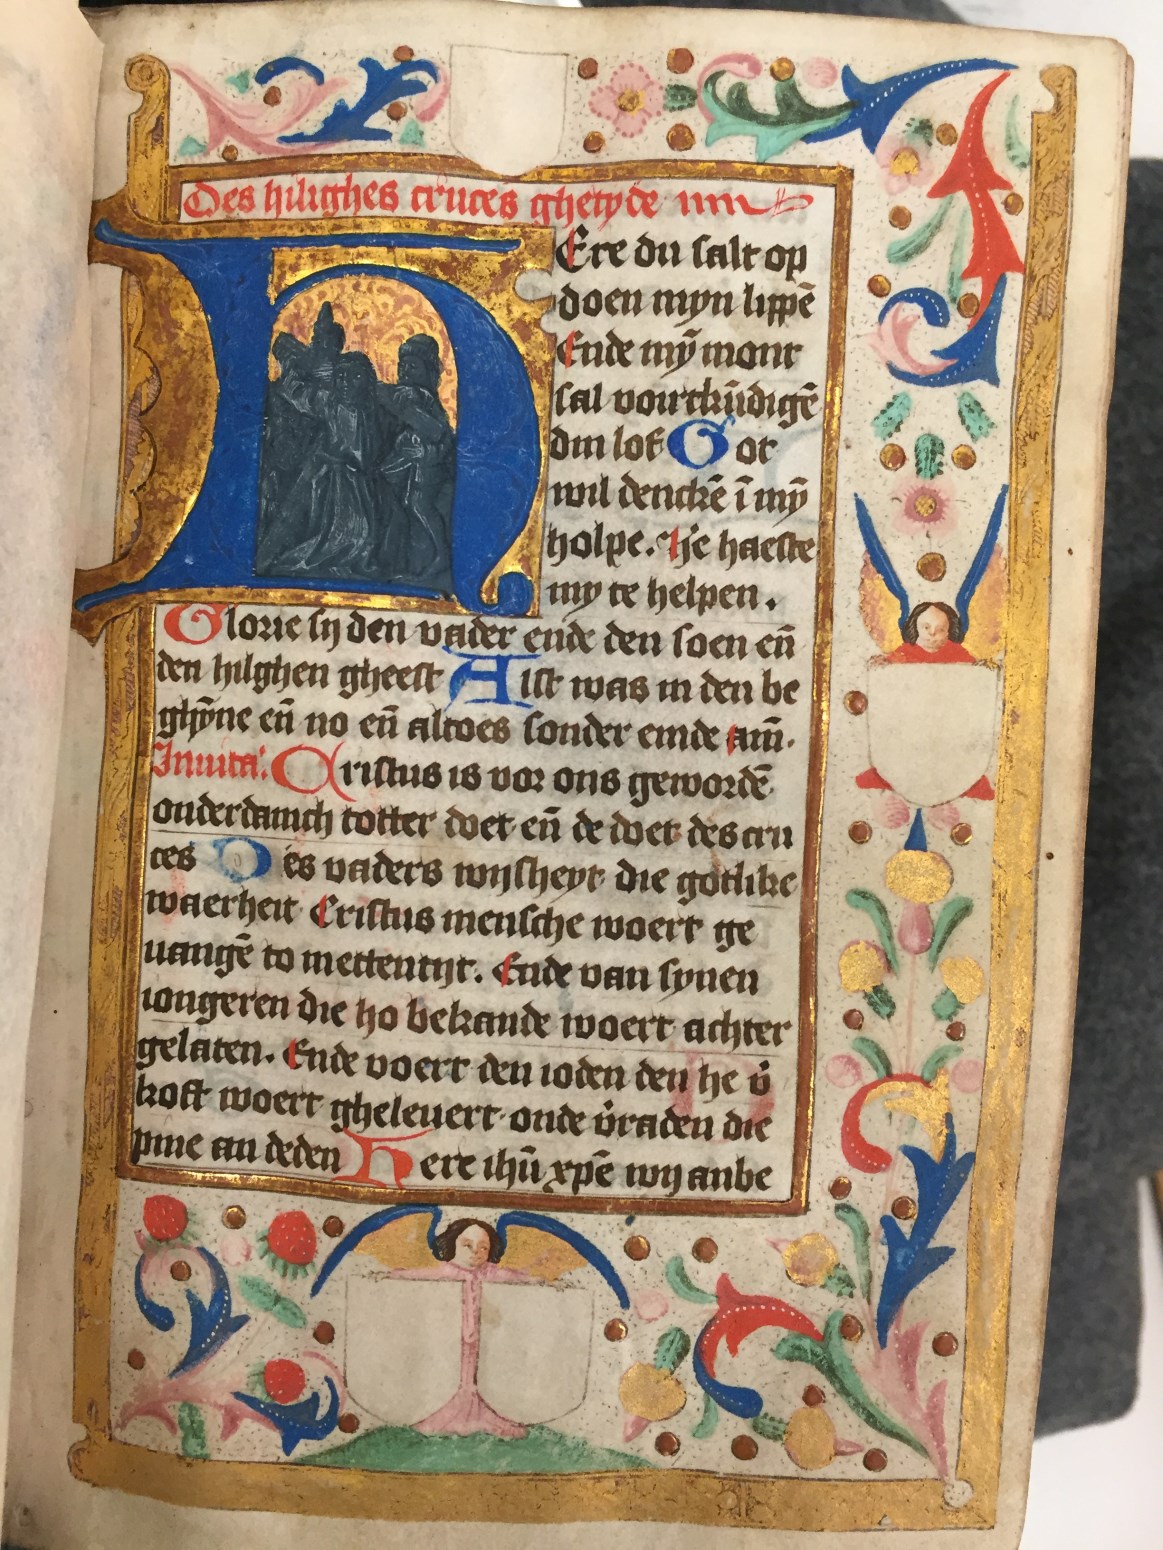 Des hilighes cruces ghetyde
HEre du salt op
doen myn lippē
Ende mȳ mont
sal vortkūdigē
din lof Got
wil denckē ī mȳ
holpe. He haeste
my te helpen.
Glorie sy den vader ende den soen eñ
den hilghen gheest Alst was in den be
ghȳne eñ no eñ altoes sonder einde am̄.
Inuita'. Cristus is vor ons gewordē
onderdanich totter doet eñ de doet des cru
ces Des vaders wijsheyt die gotlike
waerheit Cristus mensche woert ge
uangē to mettentijt. Ende van synen
iongeren die ho bekande woert achter
gelaten. Ende voert den ioden den he v̄
koft woert gheleuert onde v̄raden die
pine an deden Here ihū xpē wij anbe